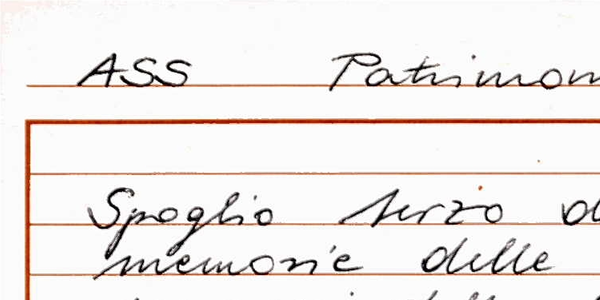 ASS Patrimon
Spoglio terzo d
memorie delle